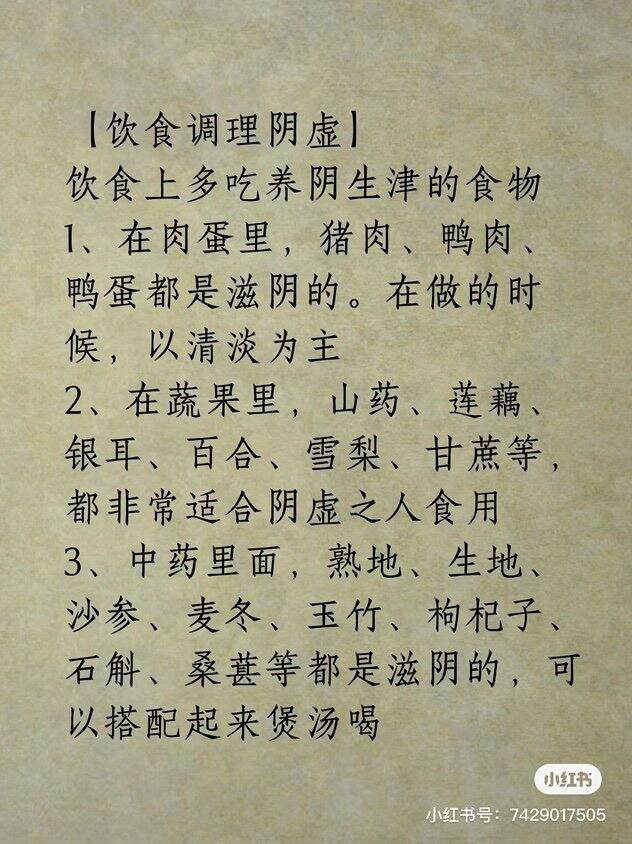 【饮食调理阴虚】
饮食上多吃养阴生津的食物
1、在肉蛋里，猪肉、鸭肉、
鸭蛋都是滋阴的。在做的时
候，以清淡为主
2、在蔬果里，山药、莲藕、
银耳、百合、雪梨、甘蔗等，
都非常适合阴虚之人食用
3、中药里面，熟地、生地、
沙参、麦冬、玉竹、枸杞子、
石斛、桑葚等都是滋阴的，可
以搭配起来煲汤喝
小红书
小红书号：7429017505